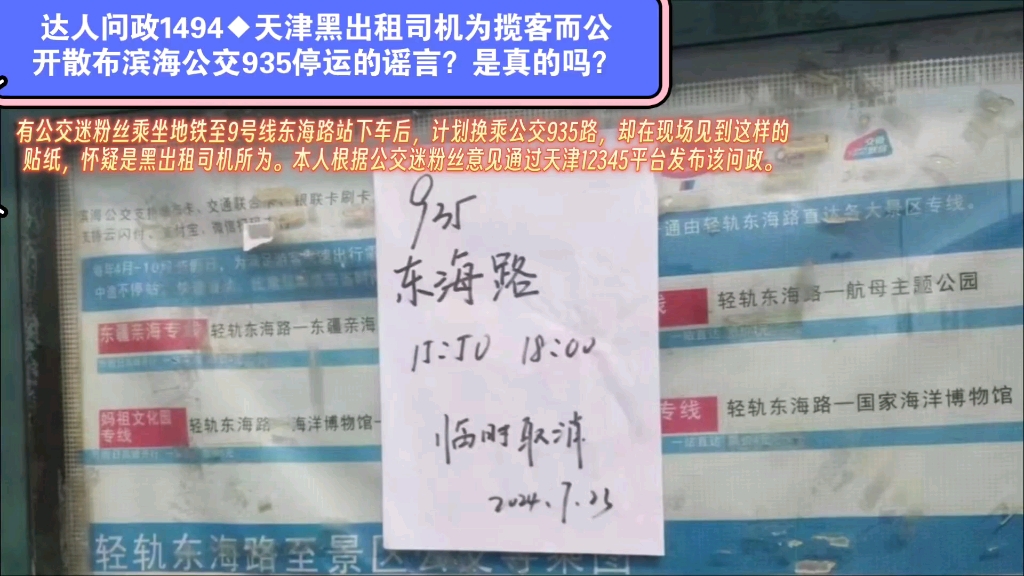 达人问政1494◆天津黑出租司机为揽客而公
开散布滨海公交935停运的谣言？是真的吗？
有公交迷粉丝乘坐地铁至9号线东海路站下车后，计划换乘公交935路，却在现场见到这样的
贴纸，怀疑是黑出租司机所为。本人根据公交迷粉丝意见通过天津12345平台发布该问政。
935
东海路
15:50 18:00
临时取消
2024.7.23
滨海公交支持
卡、交通联合
银联卡刷卡
支持云闪付、
付宝、微信
每年4月-10
中途不停站
东疆亲海专线
轻轨东海路—东疆亲海
妈祖文化园
专线
轻轨东海路—海洋博物馆
通由轻轨东海路直达各大景区专线。
线
轻轨东海路—航母主题公园
专线
轻轨东海路—国家海洋博物馆
轻轨东海路至景区公交导乘图